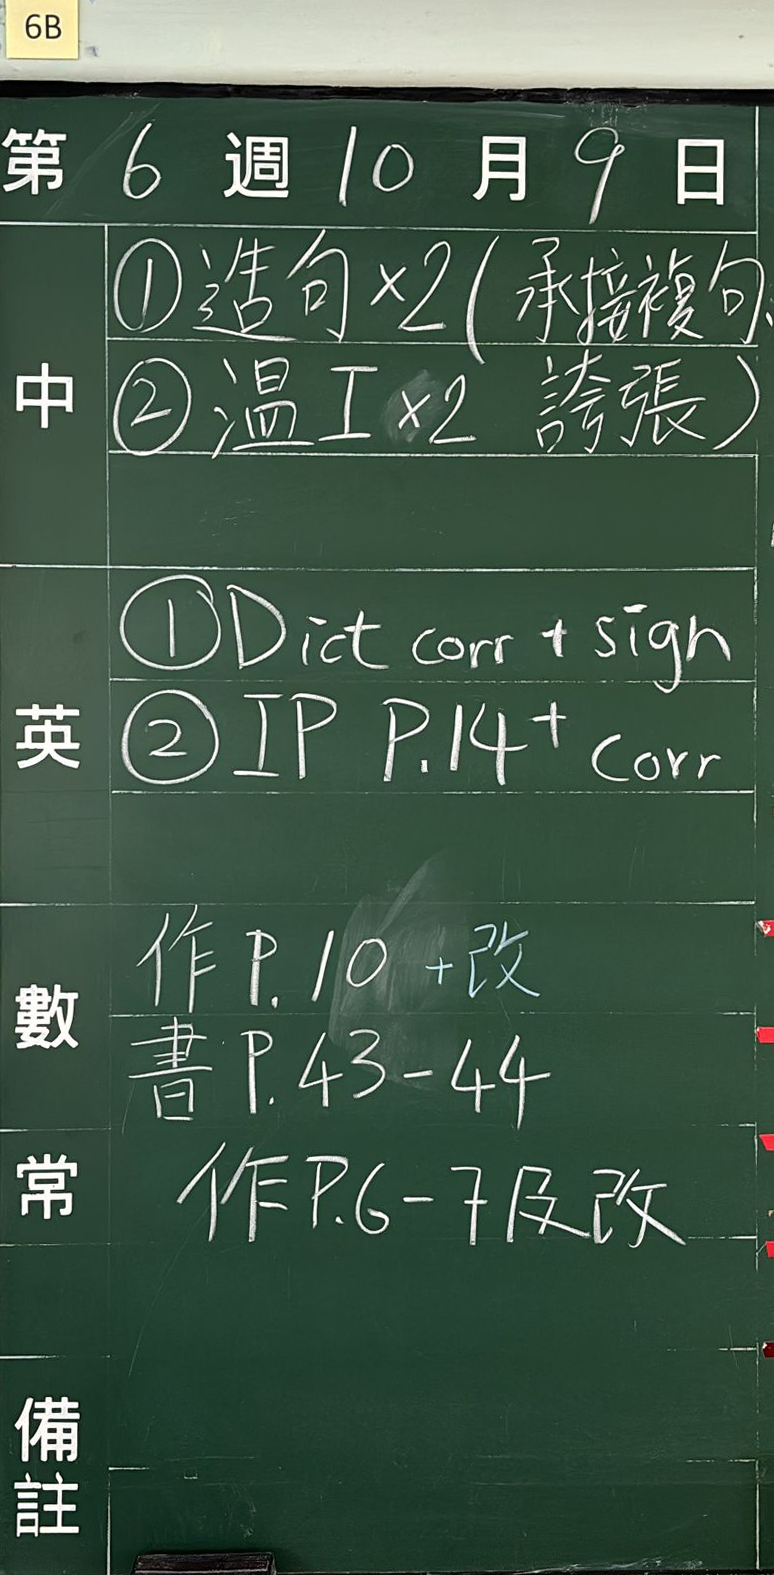 6B
第 6 週 10 月 9 日
中
①造句×2(承接複句、
②溫工×2 誇張)
英
①Dict corr + sign
②IP P.14+ corr
數
作 P.10 +改
書 P.43-44
常
作P.6-7及改
備註